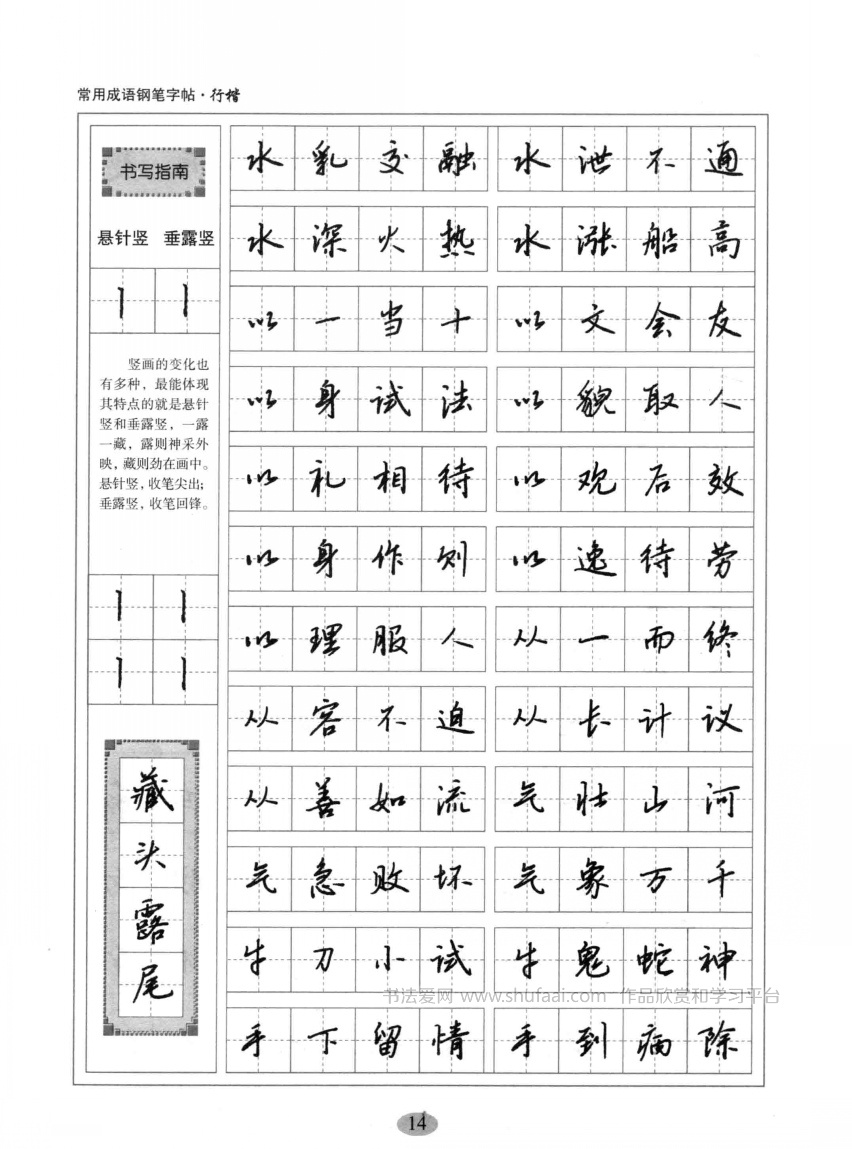 常用成语钢笔字帖·行楷
书写指南
悬针竖 垂露竖
竖画的变化也
有多种，最能体现
其特点的就是悬针
竖和垂露竖，一露
一藏，露则神采外
映，藏则劲在画中。
悬针竖，收笔尖出；
垂露竖，收笔回锋。
藏
头
露
尾
水乳交融 水泄不通
水深火热 水涨船高
以一当十 以文会友
以身试法 以貌取人
以礼相待 以观后效
以身作则 以逸待劳
以理服人 从一而终
从容不迫 从长计议
从善如流 气壮山河
气急败坏 气象万千
牛刀小试 牛鬼蛇神
手下留情 手到病除
书法爱网 www.shufaai.com 作品欣赏和学习平台
14